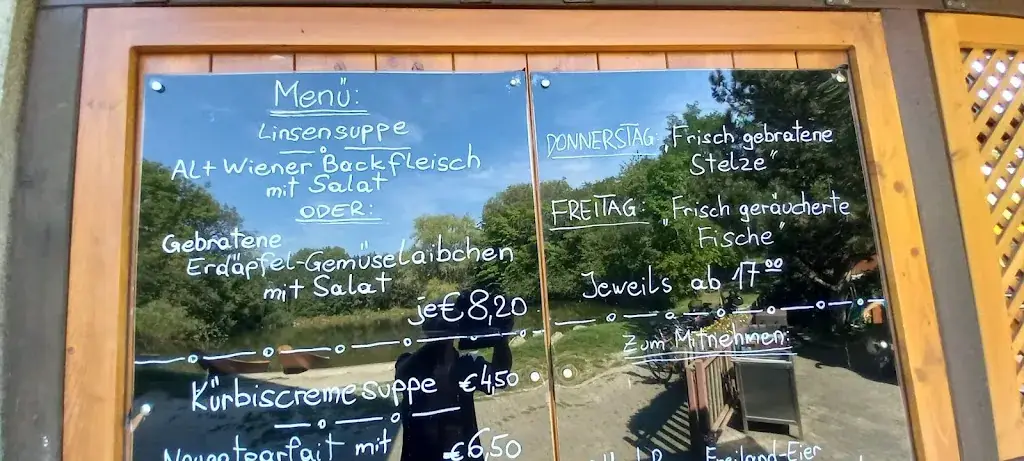 Menü:
Linsensuppe
Alt Wiener Backfleisch
mit Salat
ODER:
Gebratene
Erdäpfel-Gemüselaibchen
mit Salat
je € 8,20
Kürbiscremesuppe €4,50
Nougatparfait mit €6,50
DONNERSTAG: „Frisch gebratene
Stelze"
FREITAG: „Frisch geräucherte
Fische"
Jeweils ab 17⁰⁰
Zum Mitnehmen:
Freiland-Eier